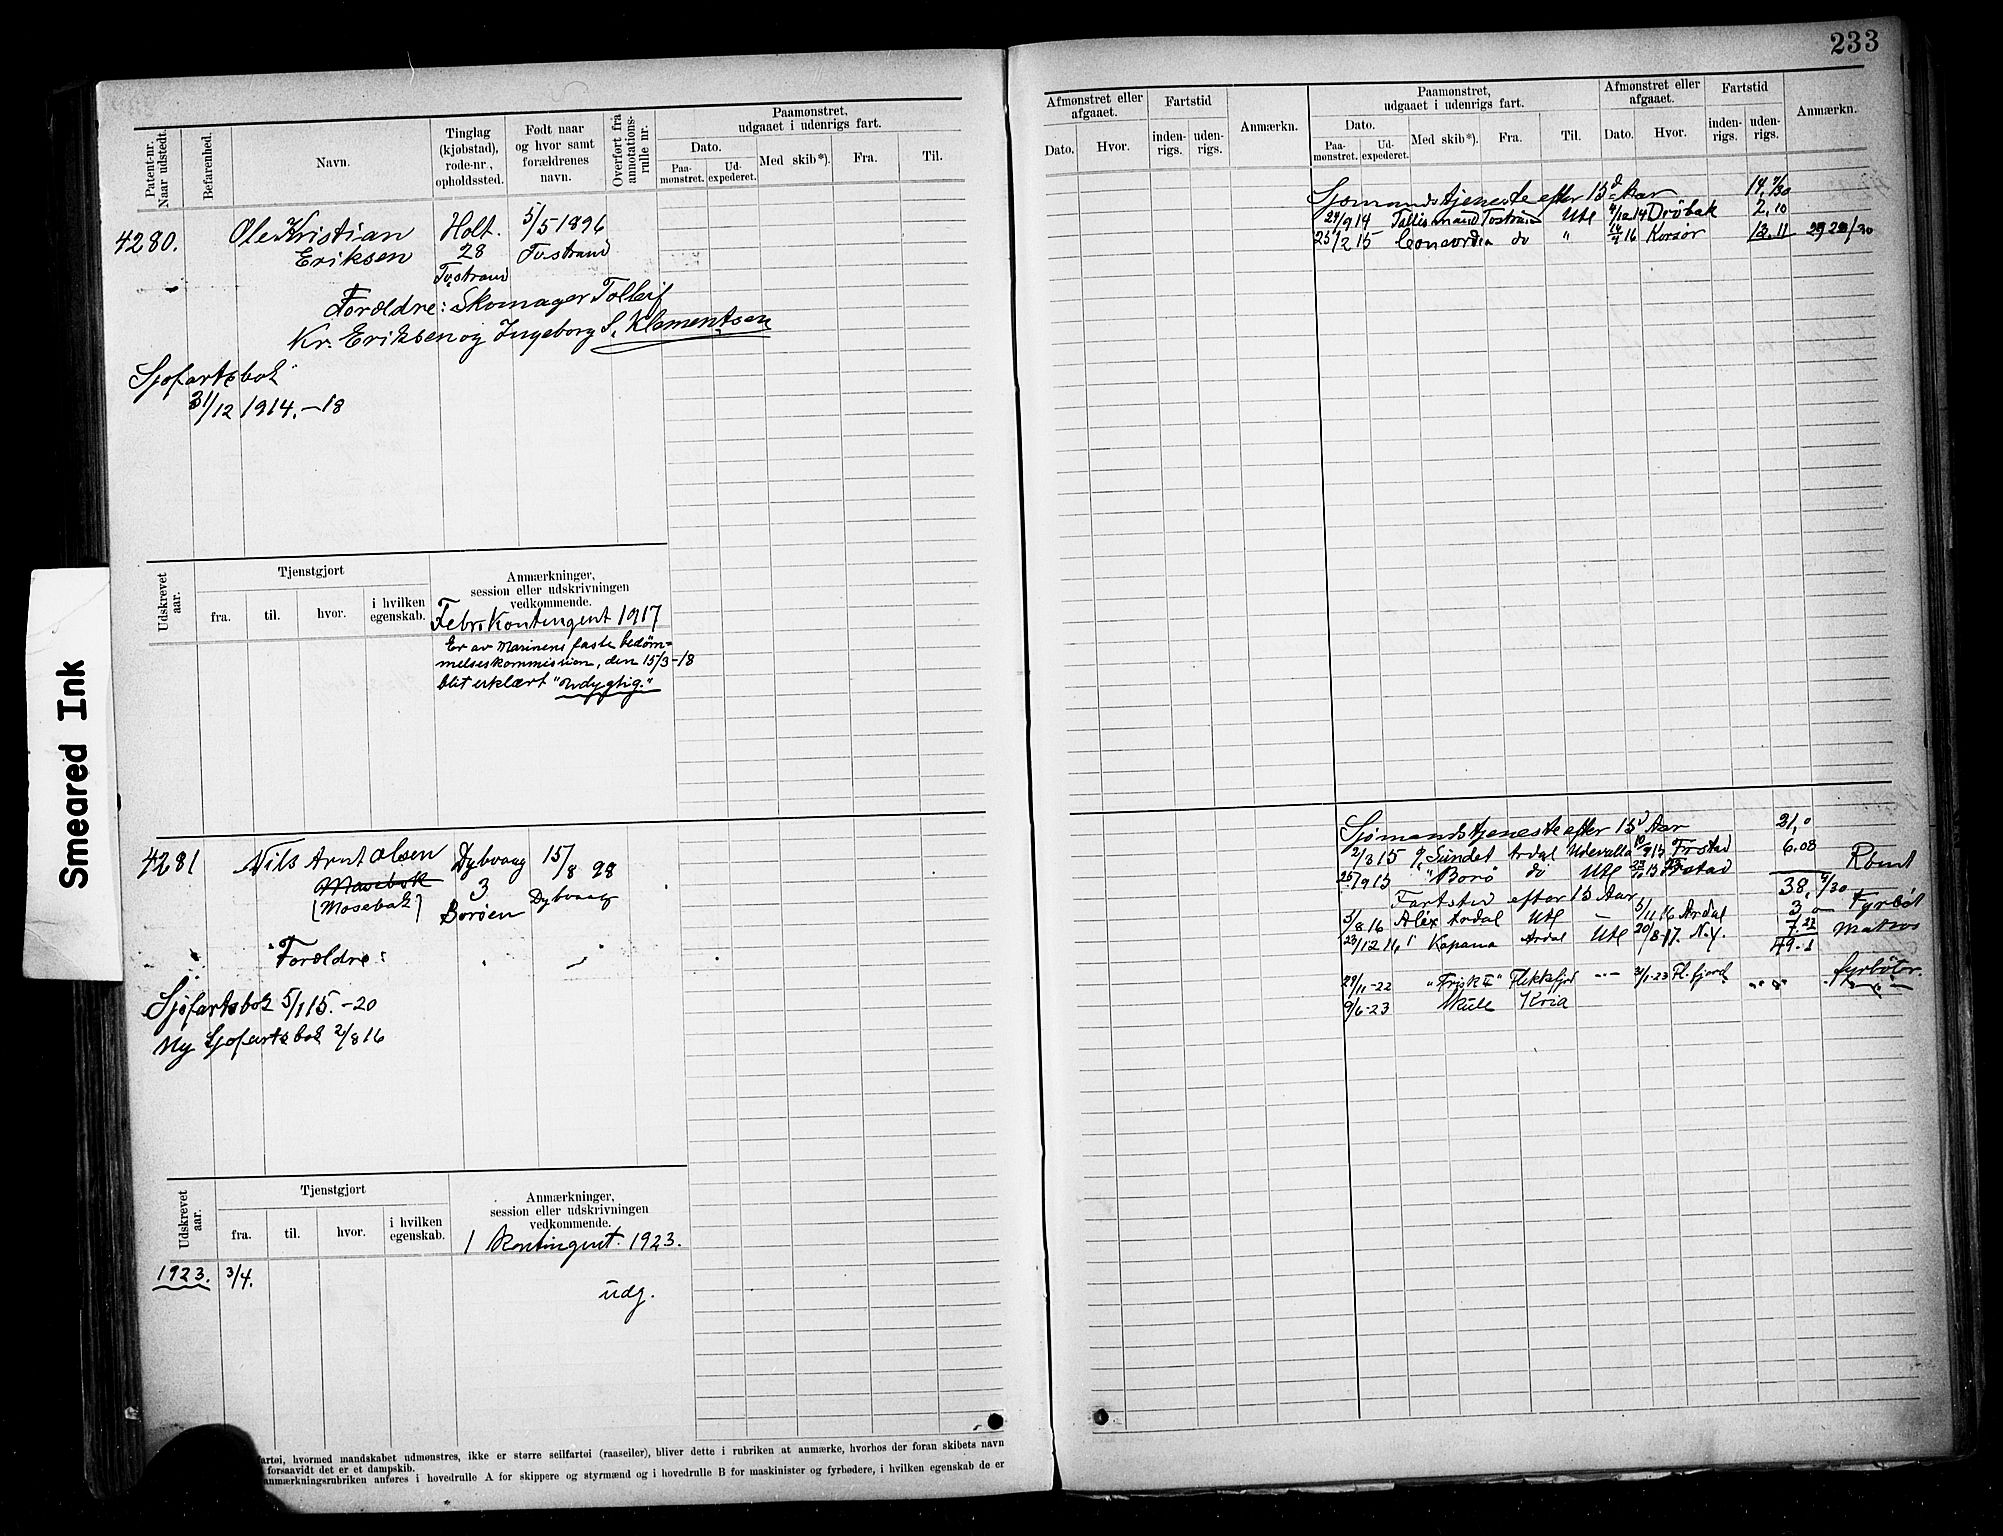 233
Patent-nr. Naar udstedt.
Befarenhed.
Navn.
Tinglag (kjøbstad), rode-nr., opholdssted.
Født naar og hvor samt forældrenes navn.
Overført fra annotations-rulle nr.
Paamønstret, udgaaet i udenrigs fart.
Dato.
Paa-mønstret.
Ud-expederet.
Med skib*).
Fra.
Til.
4280.
Ole Kristian
Eriksen
Holt.
28
Tvstrand
5/5 1896
Tvstrand
Forældre: Skomager Tolleif
Kr. Eriksen og Ingeborg S. Klementsen
Sjofartsbok
31/12 1914.-18
Udskrevet aar.
Tjenstgjort
fra.
til.
hvor.
i hvilken egenskab.
Anmærkninger, session eller udskrivningen vedkommende.
Febr. Kontingent 1917
Er av Marinens faste bedøm=
melseskommission, den 15/3-18
blit erklært "udygtig."
4281
Nils Arnt Olsen
Mosebok
[Mosebak]
Dybvaag
3
Borøen
15/8 98
Dybvaag
Forældre:
Sjøfartsbok 5/1 15.-20
Ny Sjofartsbok 2/8 16
Udskrevet aar.
Tjenstgjort
fra.
til.
hvor.
i hvilken egenskab.
Anmærkninger, session eller udskrivningen vedkommende.
1 Kontingent. 1923.
1923. 3/4.
udg.
artøi, hvormed mandskabet udmønstres, ikke er større seilfartøi (raaseiler), bliver dette i rubriken at anmærke, hvorhos der foran skibets navn
forsaavidt det er et dampskib.
anmærkningsrubriken anføres i hovedrulle A for skippere og styrmænd og i hovedrulle B for maskinister og fyrbødere, i hvilken egenskab de er
Afmønstret eller afgaaet.
Dato.
Hvor.
Fartstid
inden-rigs.
uden-rigs.
Anmærkn.
Paamønstret, udgaaet i udenrigs fart.
Dato.
Paa-mønstret.
Ud-expederet.
Med skib*).
Fra.
Til.
Afmønstret eller afgaaet.
Dato.
Hvor.
Fartstid
inden-rigs.
uden-rigs.
Anmærkn.
Sjømandstjeneste efter 15 Aar
29/9 14 Tallismand Tvstrand Utl 4/12 14 Drøbak 2.10
25/2 15 Concordia do " Korsør 13.11
Sjømandstjeneste efter 15 Aar 21,0
2/3 15 Sundet Ardal Udevalla Frstad 6.08
25/9 15 " Borø do Utl Frstad
Fartstid efter 15 Aar 38,
3/8 16 Alex Ardal Utl 5/11 16 Ardal 3
23/12 16 Kapana Ardal Utl 20/8-17. N.y. 7.27
49.1
29/11-22 "Frisk II" Flekkefjor Fl. fjord fyrbøter.
9/6-23 Skule Kria
Smeared Ink